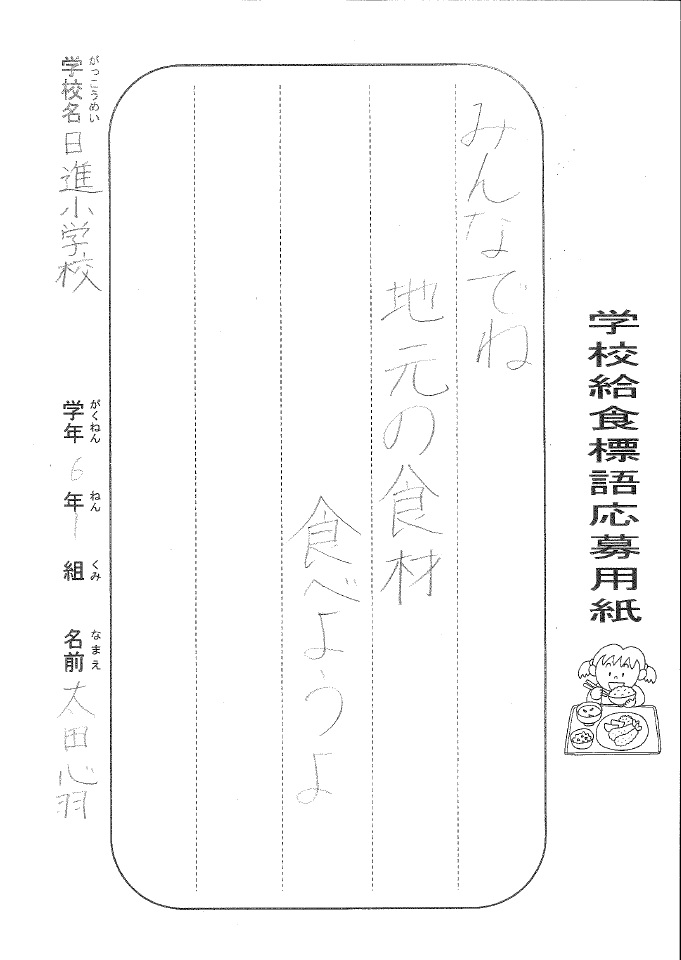 学校給食標語応募用紙
みんなでね
地元の食材
食べようよ
学校名 日進小学校 学年 6 年 1 組 名前 太田心羽
がっこうめい がくねん ねん くみ なまえ